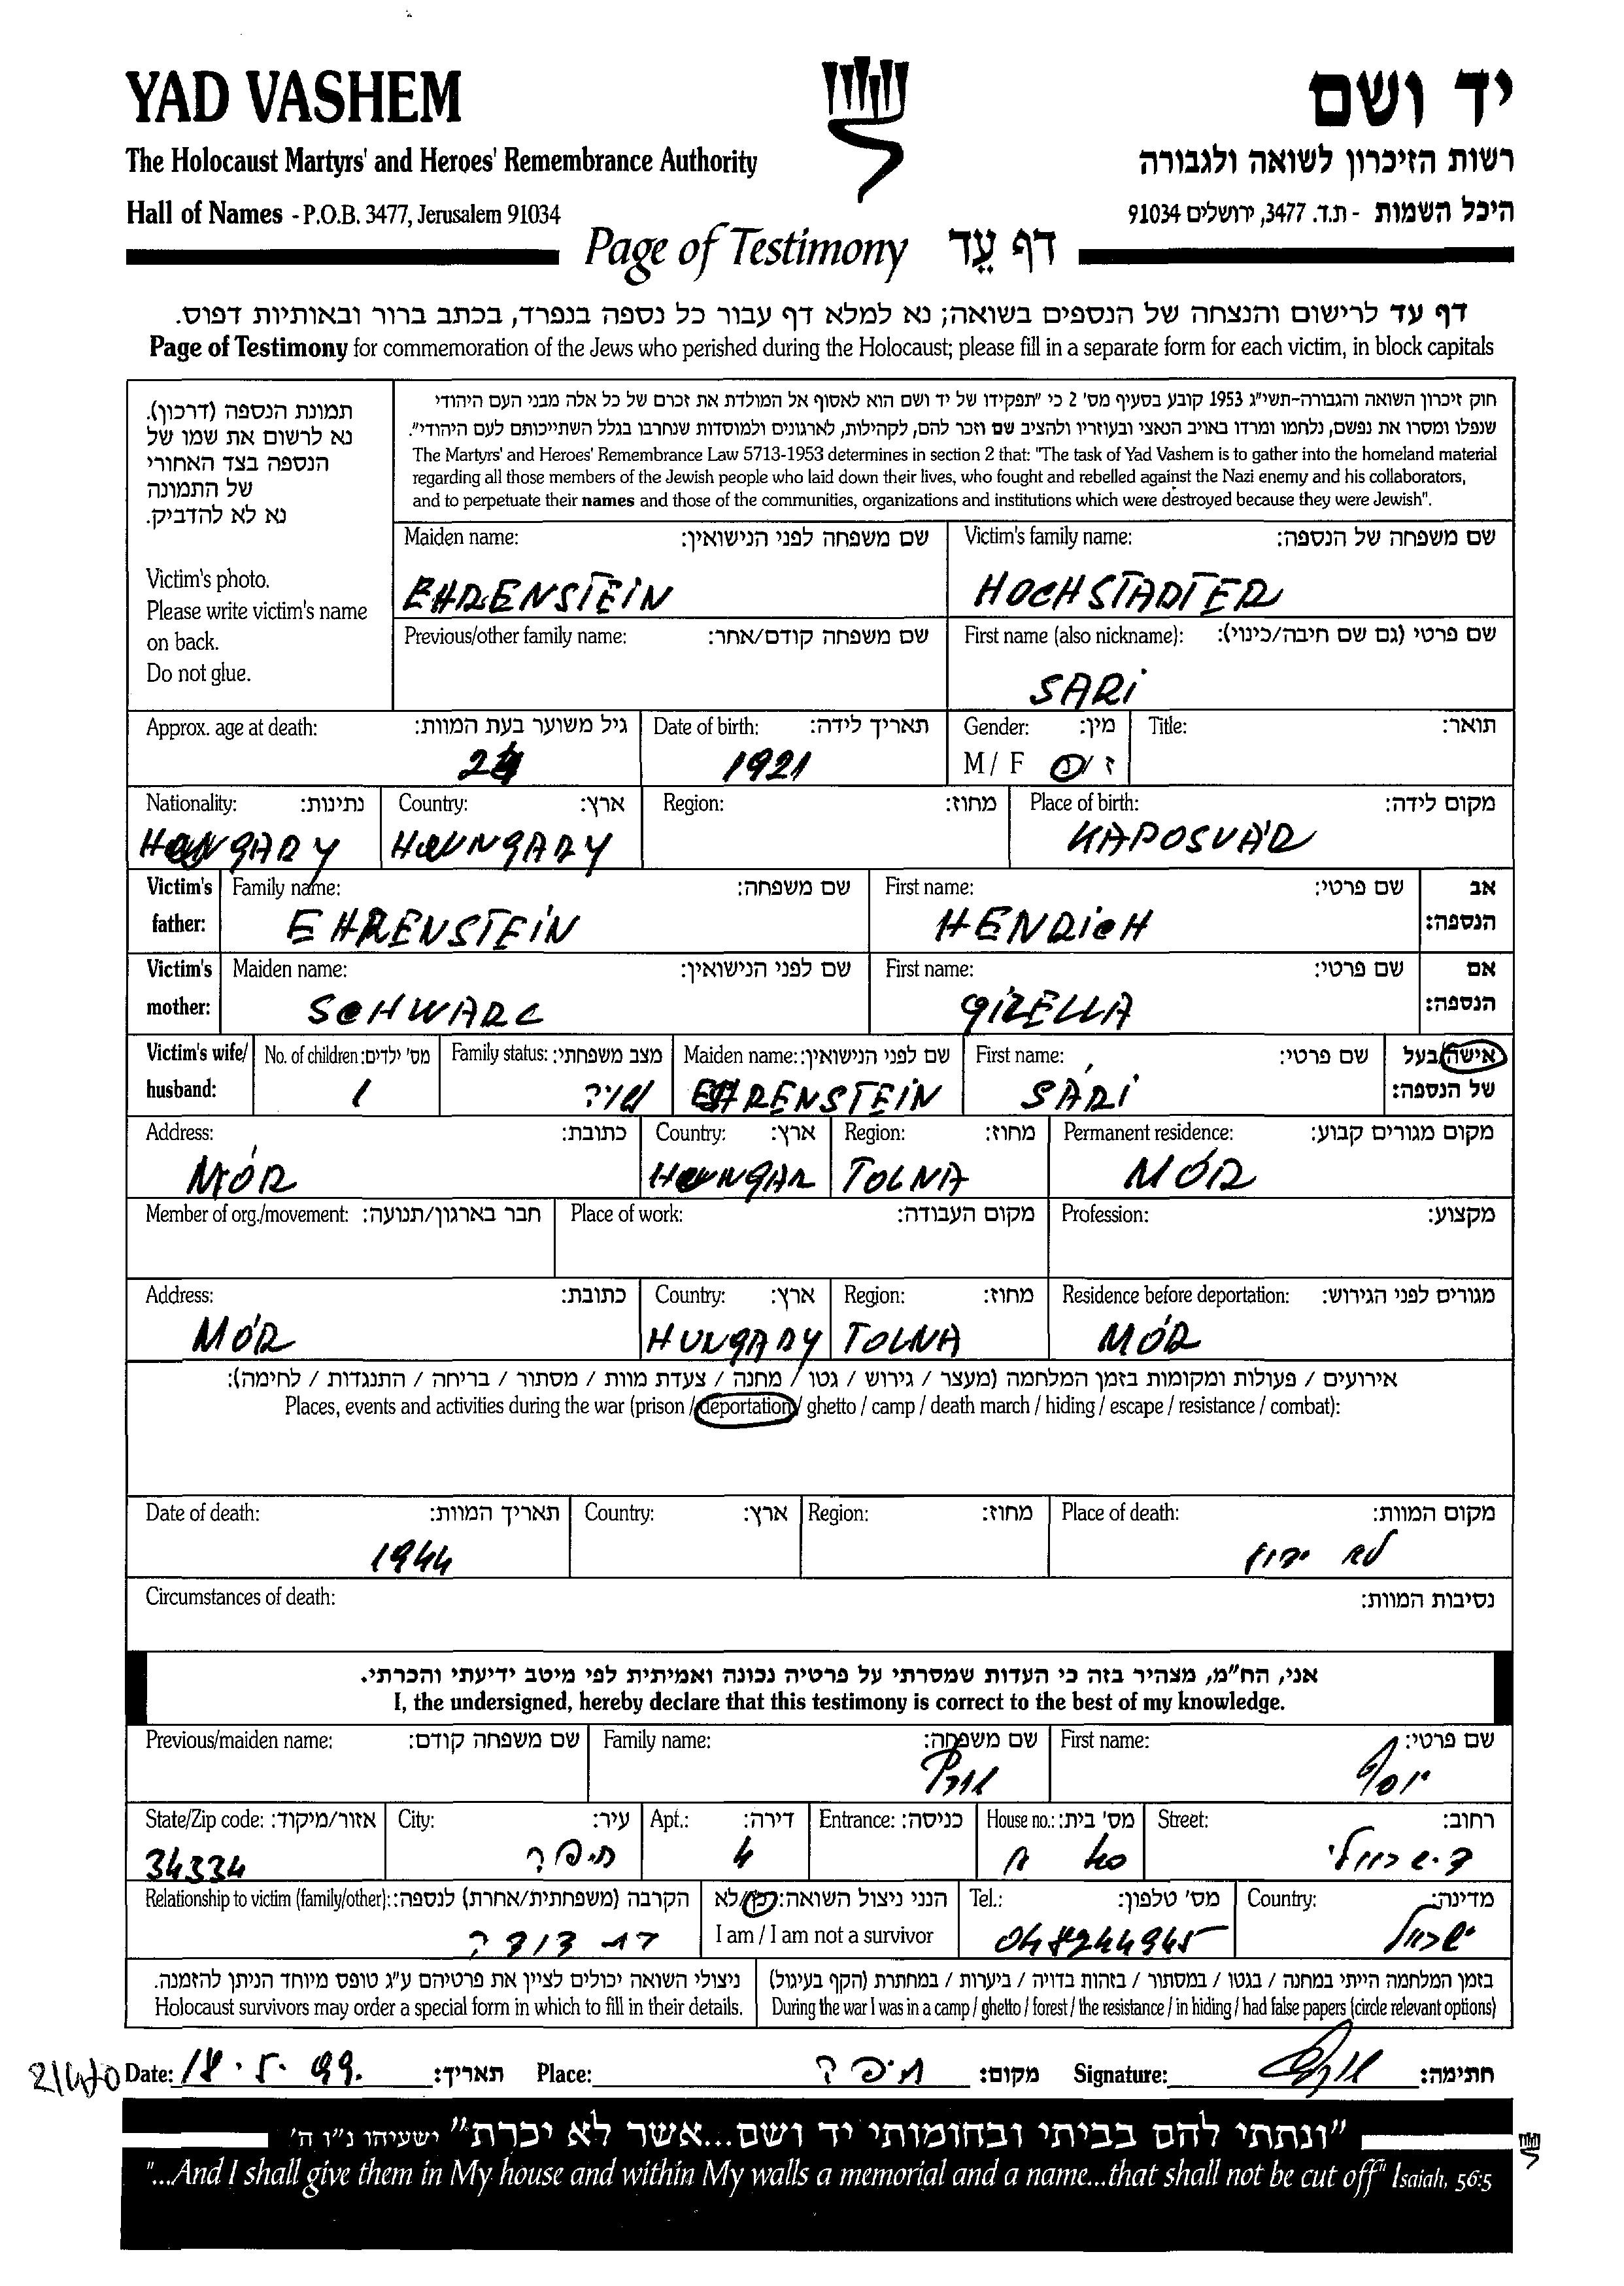 YAD VASHEM
יד ושם
The Holocaust Martyrs' and Heroes' Remembrance Authority
רשות הזיכרון לשואה ולגבורה
Hall of Names - P.O.B. 3477, Jerusalem 91034
היכל השמות - ת.ד. 3477, ירושלים 91034
Page of Testimony דף עֵד
דף עד לרישום והנצחה של הנספים בשואה; נא למלא דף עבור כל נספה בנפרד, בכתב ברור ובאותיות דפוס.
Page of Testimony for commemoration of the Jews who perished during the Holocaust; please fill in a separate form for each victim, in block capitals
תמונת הנספה (דרכון).
נא לרשום את שמו של
הנספה בצד האחורי
של התמונה
נא לא להדביק.
Victim's photo.
Please write victim's name
on back.
Do not glue.
חוק זיכרון השואה והגבורה-תשי"ג 1953 קובע בסעיף מס' 2 כי "תפקידו של יד ושם הוא לאסוף אל המולדת את זכרם של כל אלה מבני העם היהודי
שנפלו ומסרו את נפשם, נלחמו ומרדו באויב הנאצי ובעוזריו ולהציב שם וזכר להם, לקהילות, לארגונים ולמוסדות שנחרבו בגלל השתייכותם לעם היהודי".
The Martyrs' and Heroes' Remembrance Law 5713-1953 determines in section 2 that: "The task of Yad Vashem is to gather into the homeland material
regarding all those members of the Jewish people who laid down their lives, who fought and rebelled against the Nazi enemy and his collaborators,
and to perpetuate their names and those of the communities, organizations and institutions which were destroyed because they were Jewish".
Maiden name: שם משפחה לפני הנישואין:
EHRENSTEIN
Victim's family name: שם משפחה של הנספה:
HOCHSTADTER
Previous/other family name: שם משפחה קודם/אחר:
First name (also nickname): שם פרטי (גם שם חיבה/כינוי):
SARI
Approx. age at death: גיל משוער בעת המוות:
Date of birth: תאריך לידה:
1921
Gender: מין:
M / F ז / נ
Title: תואר:
Nationality: נתינות:
HUNGARY
Country: ארץ:
HUNGARY
Region: מחוז:
Place of birth: מקום לידה:
KAPOSVÁR
Victim's father: Family name: שם משפחה:
EHRENSTEIN
First name: שם פרטי:
HENRICH
אב הנספה:
Victim's mother: Maiden name: שם לפני הנישואין:
SCHWARC
First name: שם פרטי:
GIZELLA
אם הנספה:
Victim's wife/ husband:
No. of children: מס' ילדים:
1
Family status: מצב משפחתי:
נשויה
Maiden name: שם לפני הנישואין:
EHRENSTEIN
First name: שם פרטי:
SÁRI
אישה/בעל של הנספה:
Address: כתובת:
MÓR
Country: ארץ:
HUNGAR
Region: מחוז:
TOLNA
Permanent residence: מקום מגורים קבוע:
MÓR
Member of org./movement: חבר בארגון/תנועה:
Place of work: מקום העבודה:
Profession: מקצוע:
Address: כתובת:
MÓR
Country: ארץ:
HUNGARY
Region: מחוז:
TOLNA
Residence before deportation: מגורים לפני הגירוש:
MÓR
אירועים / פעולות ומקומות בזמן המלחמה (מעצר / גירוש / גטו / מחנה / צעדת מוות / מסתור / בריחה / התנגדות / לחימה):
Places, events and activities during the war (prison / deportation / ghetto / camp / death march / hiding / escape / resistance / combat):
Date of death: תאריך המוות:
1944
Country: ארץ:
Region: מחוז:
Place of death: מקום המוות:
לא ידוע
Circumstances of death: נסיבות המוות:
אני, הח"מ, מצהיר בזה כי העדות שמסרתי על פרטיה נכונה ואמיתית לפי מיטב ידיעתי והכרתי.
I, the undersigned, hereby declare that this testimony is correct to the best of my knowledge.
Previous/maiden name: שם משפחה קודם:
Family name: שם משפחה:
First name: שם פרטי:
יוסף
State/Zip code: אזור/מיקוד:
34334
City: עיר:
חיפה
Apt.: דירה:
4
Entrance: כניסה:
House no.: מס' בית:
Street: רחוב:
Relationship to victim (family/other): הקרבה (משפחתית/אחרת) לנספה:
בת דודה
הנני ניצול השואה: כן/לא
I am / I am not a survivor
Tel.: מס' טלפון:
048244945
Country: מדינה:
ישראל
ניצולי השואה יכולים לציין את פרטיהם ע"ג טופס מיוחד הניתן להזמנה.
Holocaust survivors may order a special form in which to fill in their details.
בזמן המלחמה הייתי במחנה / בגטו / במסתור / בזהות בדויה / ביערות / במחתרת (הקף בעיגול)
During the war I was in a camp / ghetto / forest / the resistance / in hiding / had false papers (circle relevant options)
Date: 18.5.99. תאריך: Place: חיפה מקום: Signature: חתימה:
"ונתתי להם בביתי ובחומותי יד ושם...אשר לא יכרת" ישעיהו נ"ו ה'
"...And I shall give them in My house and within My walls a memorial and a name...that shall not be cut off" Isaiah, 56:5